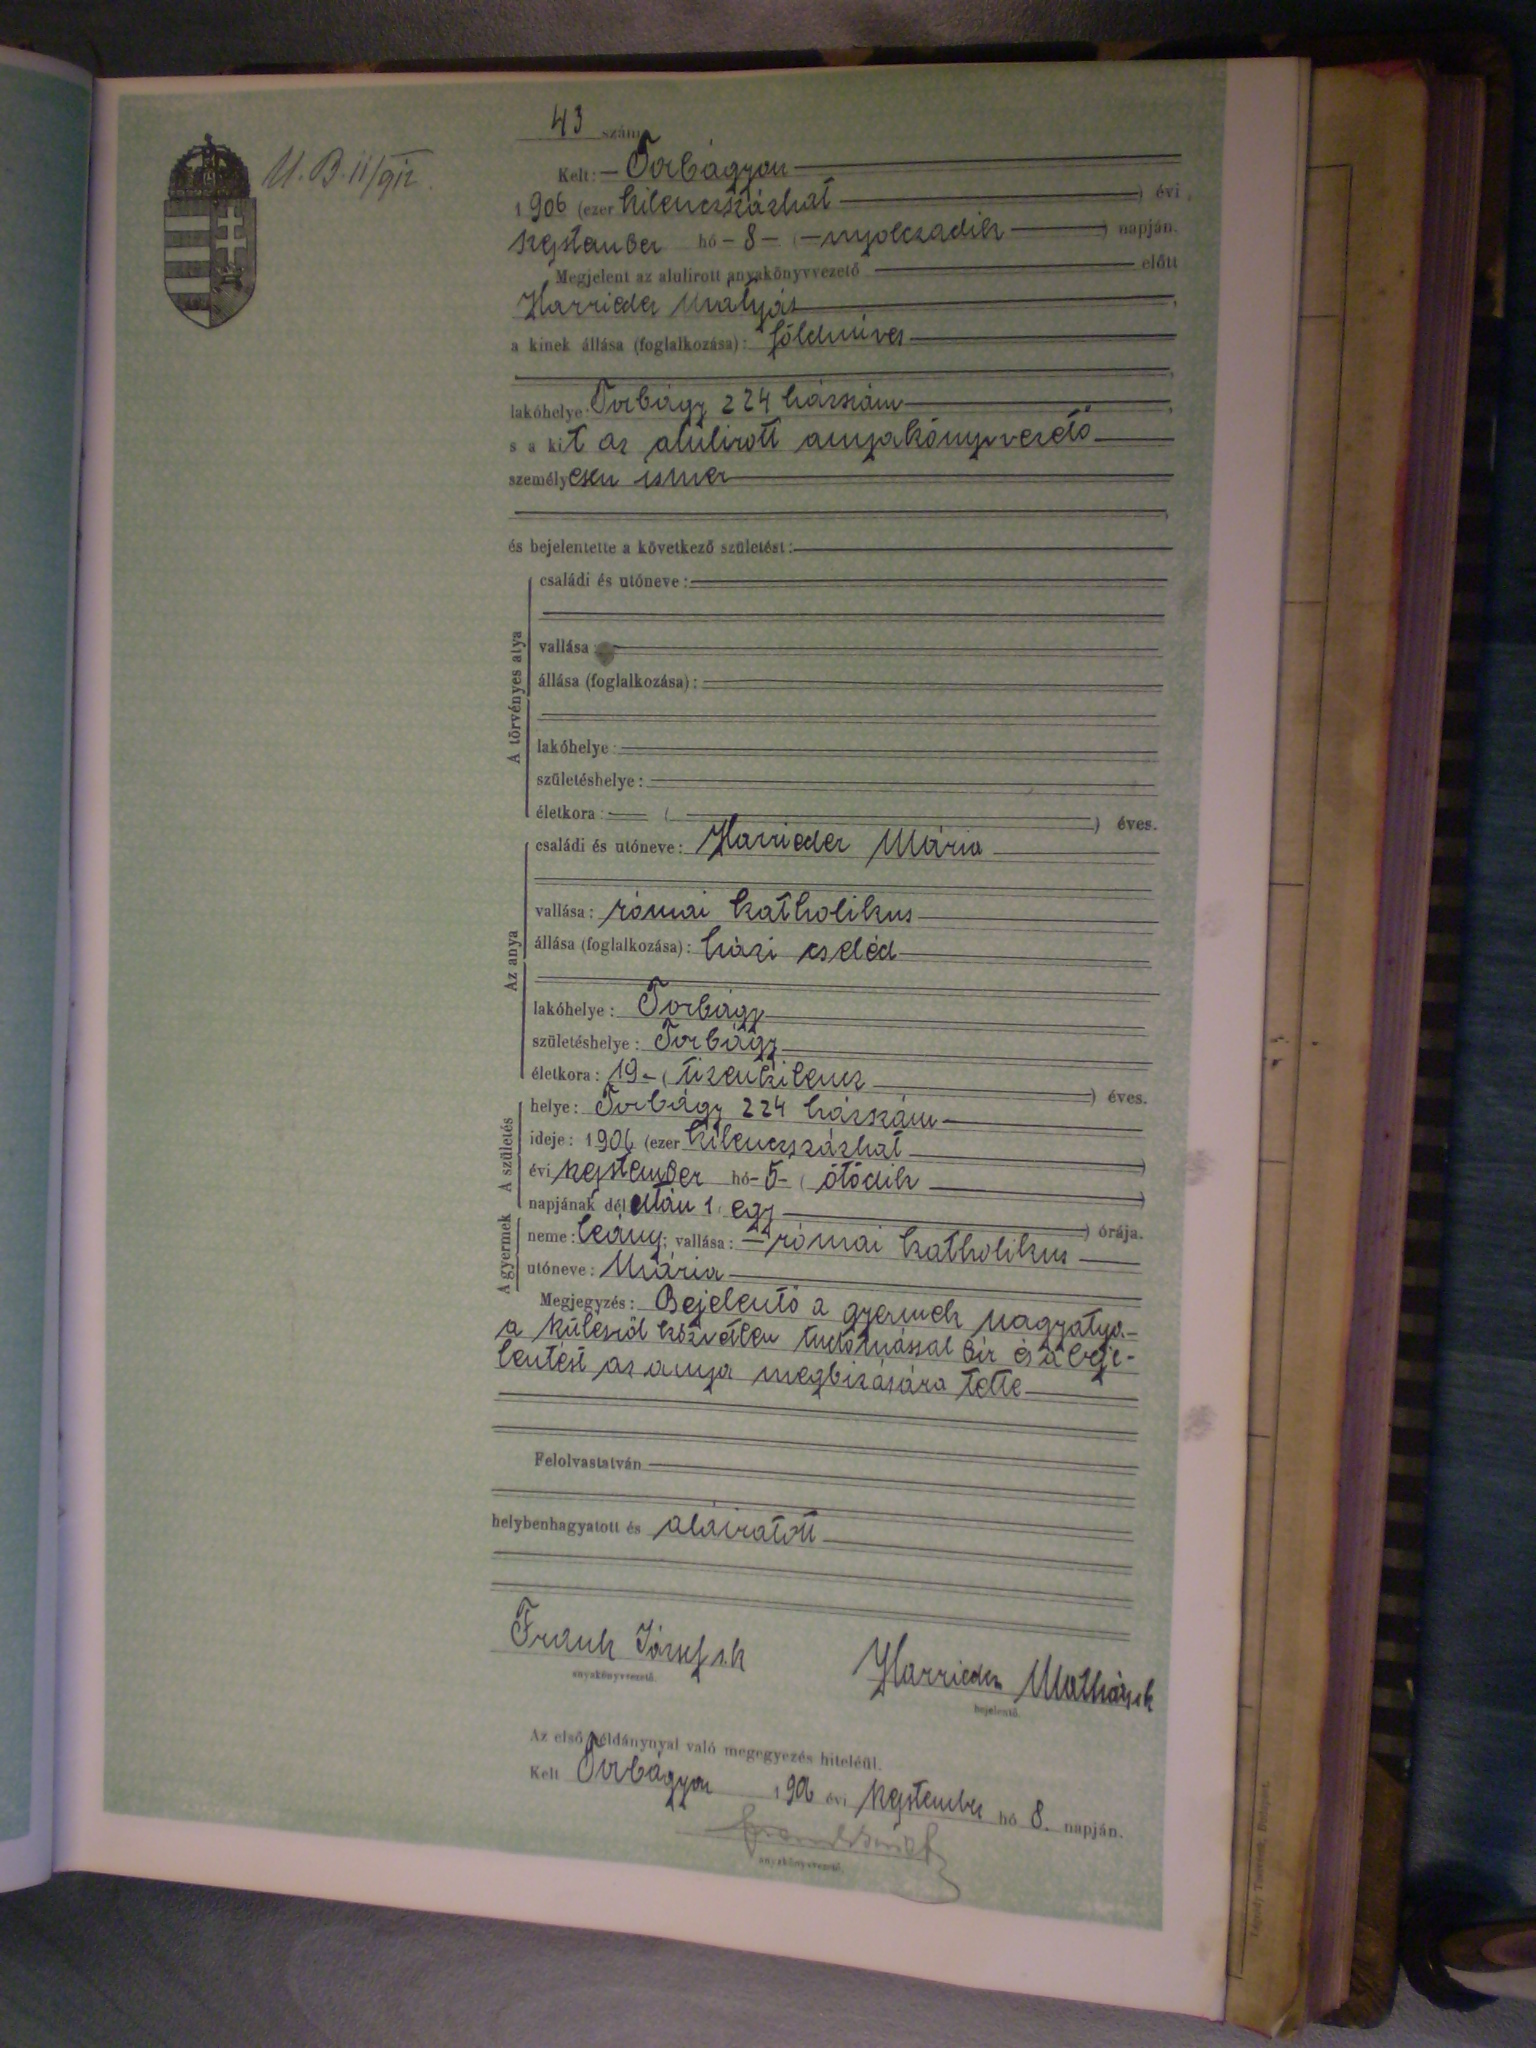 43 szám
U. B. 11/912.
Kelt: Torbágyon
1906 (ezer kilenczszázhat) évi
szeptember hó 8 (nyolczadik) napján.
Megjelent az alulirott anyakönyvvezető előtt
Harrieder Mátyás,
a kinek állása (foglalkozása): földmíves
lakóhelye: Torbágy 224 házszám,
s a kit az alulirott anyakönyvvezető
személyesen ismer
és bejelentette a következő születést:
A törvényes atya
családi és utóneve:
vallása:
állása (foglalkozása):
lakóhelye:
születéshelye:
életkora: ( ) éves.
Az anya
családi és utóneve: Harrieder Mária
vallása: római katholikus
állása (foglalkozása): házi cseléd
lakóhelye: Torbágy
születéshelye: Torbágy
életkora: 19 (tizenkilencz) éves.
A születés
helye: Torbágy 224 házszám
ideje: 1906 (ezer kilenczszázhat)
évi szeptember hó 5 (ötödik)
napjának délután 1 (egy) órája.
A gyermek
neme: leány; vallása: római katholikus
utóneve: Mária
Megjegyzés: Bejelentő a gyermek nagyatya-
a közvetlen tudomással bír és a beje-
lentést az anya megbizására tette
Felolvastatván
helybenhagyatott és aláíratott
Frank József s.k
anyakönyvvezető.
Harrieder Mathiás s.k
bejelentő.
Az első példánynyal való megegyezés hiteléül.
Kelt Torbágyon 1906 évi szeptember hó 8. napján.
anyakönyvvezető.